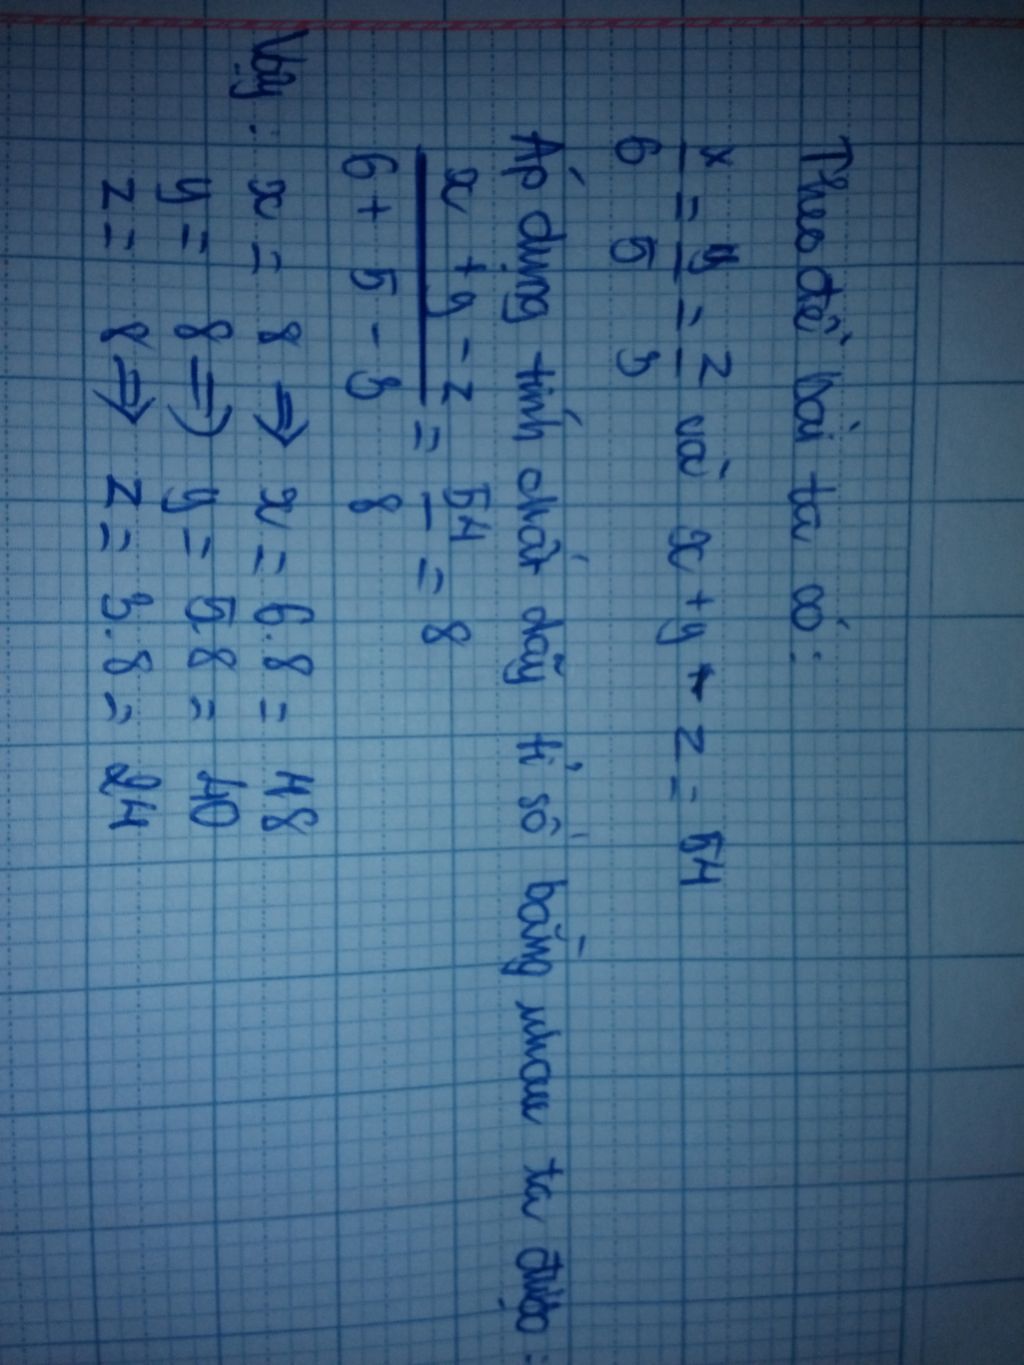 Theo đề bài ta có:
x/6 = y/5 = z/3 và x + y - z = 54
Áp dụng tính chất dãy tỉ số bằng nhau ta được:
x + y - z / 6 + 5 - 3 = 54/8 = 8
Vậy: x = 8 ⇒ x = 6.8 = 48
y = 8 ⇒ y = 5.8 = 40
z = 8 ⇒ z = 3.8 = 24